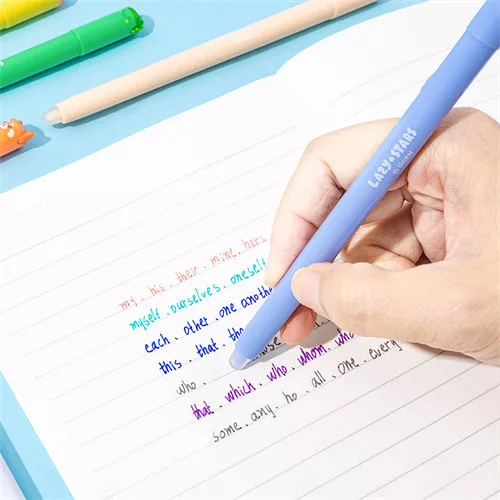 my. his. their. mine. hers
myself. ourselves. oneself
each other. one another
this. that. tho
who.
that. which. who. whom. who
some. any. no. all. one. every
LAZY STARS